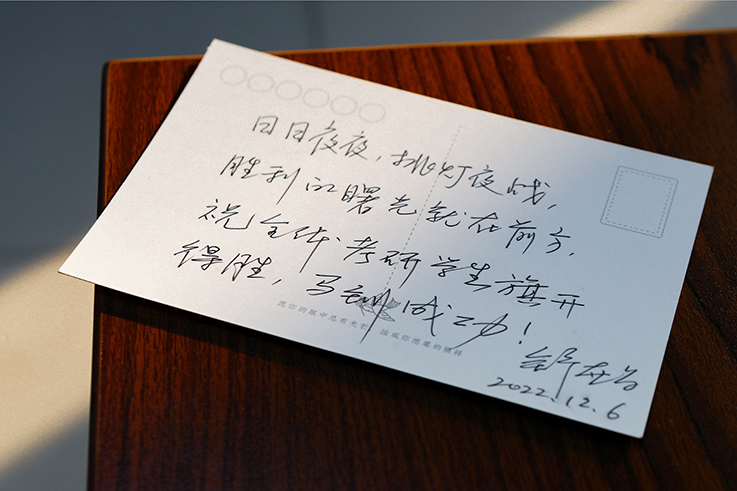 日日夜夜，挑灯夜战，
胜利的曙光就在前方，
祝全体考研学生旗开
得胜，马到成功！
愿你的眼中总有光芒 活成你想要的模样
2022.12.6